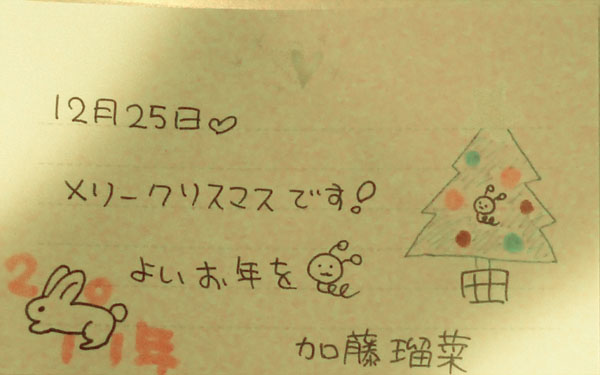 12月25日♡
メリークリスマスです!
よいお年を
2011年
加藤瑠菜